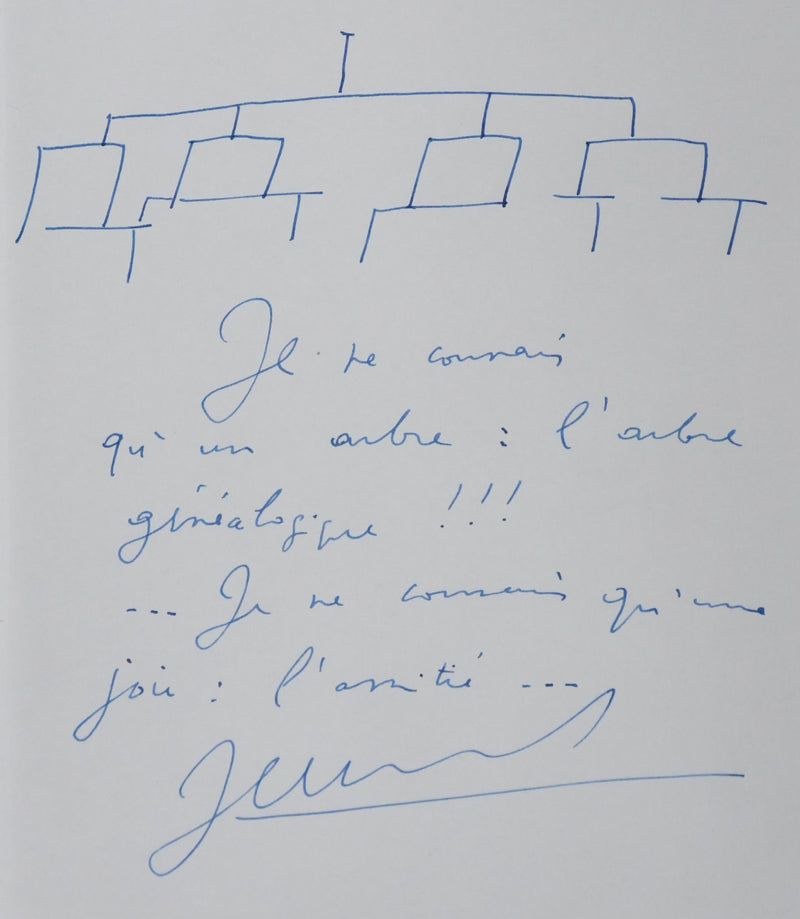 Je ne connais
qu'un arbre : l'arbre
généalogique !!!
... Je ne connais qu'une
joie : l'amitié ...